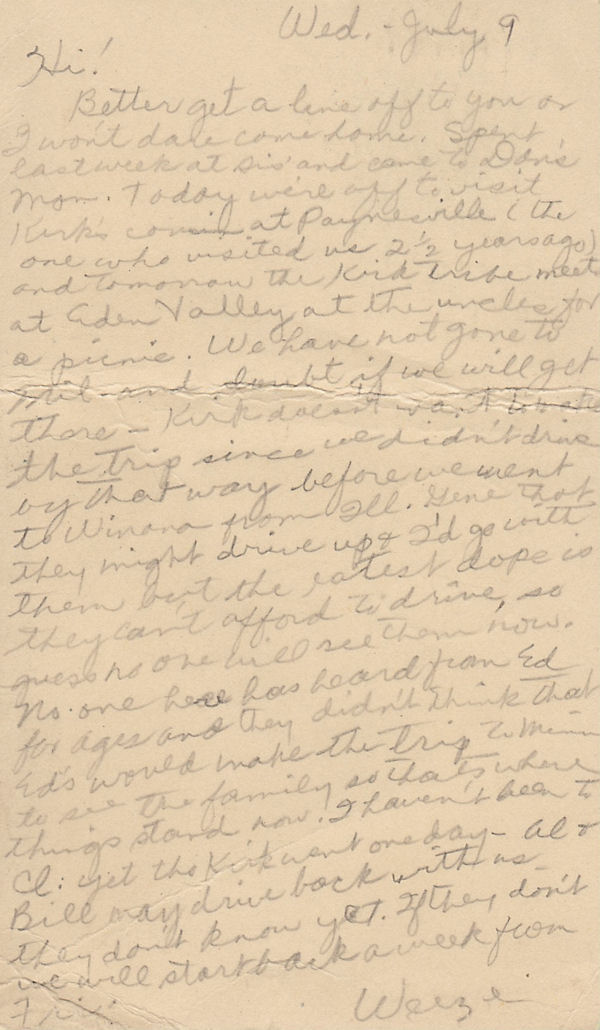 Wed. - July 9
Hi!
Better get a line off to you or
I won't dare come home. Spent
last week at Sis' and came to Don's
Mon. Today we're off to visit
Kirk's cousin at Paynesville (the
one who visited us 2½ years ago)
and tomorrow the Kirk tribe meets
at Eden Valley at the uncles for
a picnic. We have not gone to
Mil. and doubt if we will get
there - Kirk doesn't want to make
the trip since we didn't drive
by that way before we went
to Winona from Ill. Gene thot
they might drive up & I'd go with
them but the latest dope is
they can't afford to drive, so
guess no one will see them now.
No one here has heard from Ed
for ages and they didn't think that
Ed's would make the trip to Minn
to see the family so that's where
things stand now! I haven't been to
Cl: yet tho Kirk went one day - Al &
Bill may drive back with us -
they don't know yet. If they don't
we will start back a week from
Fri.
Weeze